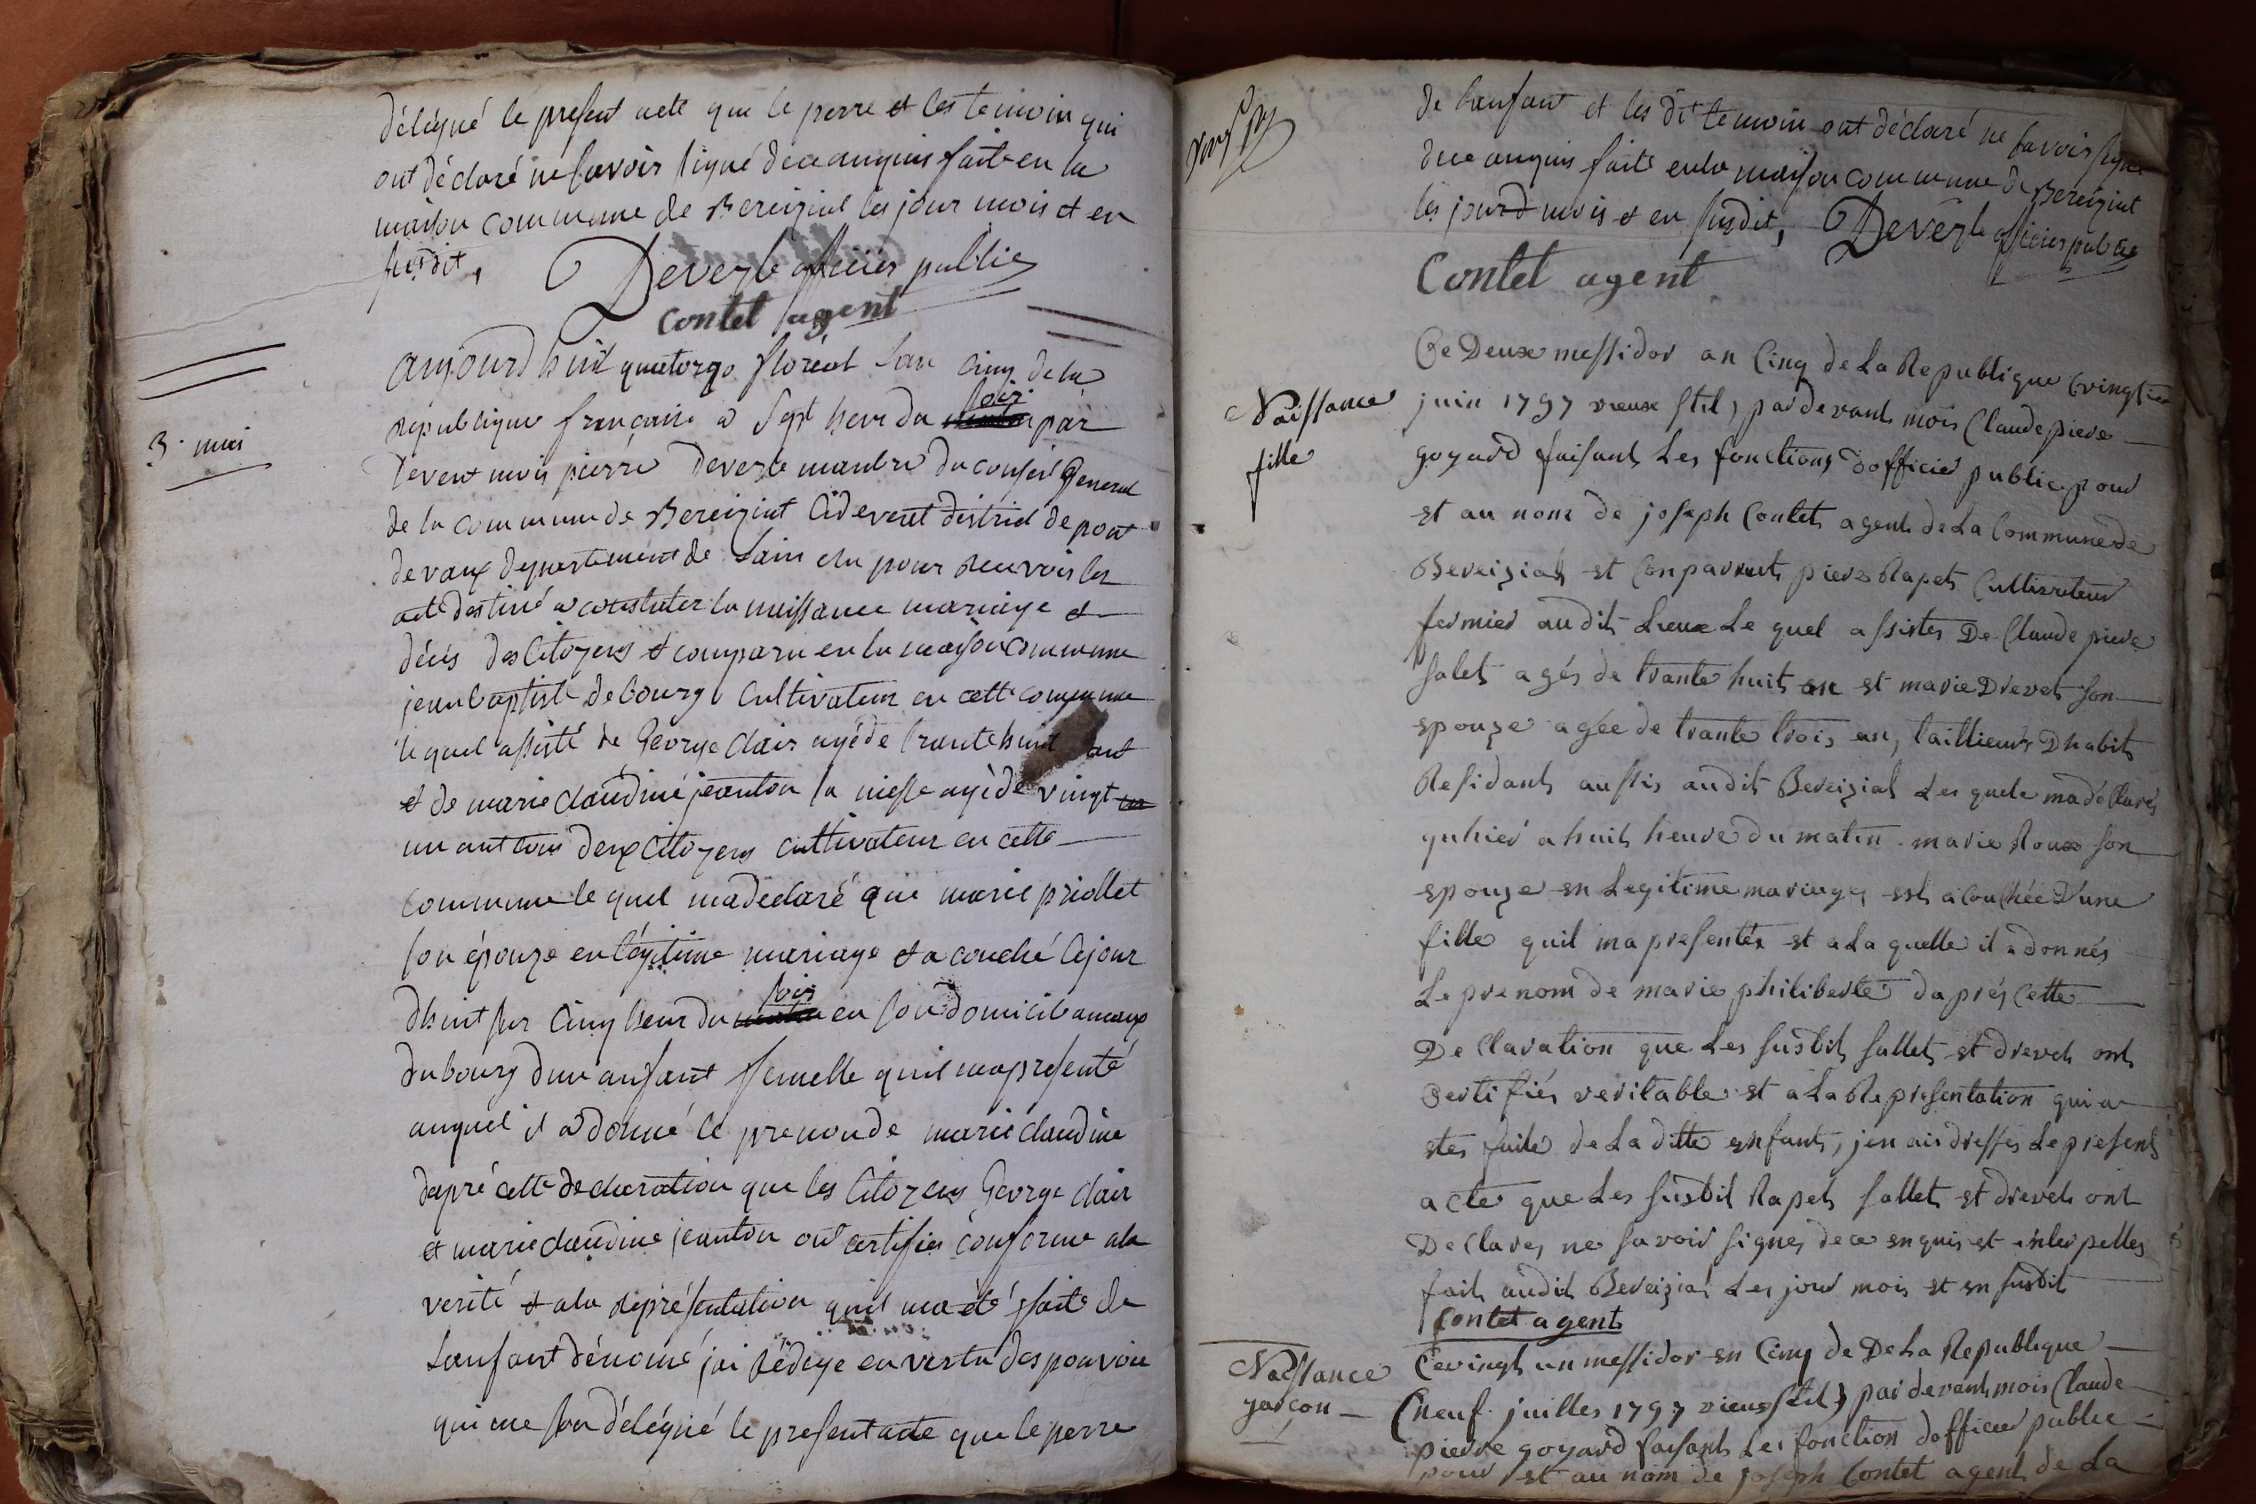 délégué le présent acte que le perre et les temoin qui
ont déclaré ne savoir signé dece anquis fait en la
maison commune de Bereiziat les jour mois et en
susdit, Deverle officier public
Contet agent
aujourdhuit quatorze floréal lan cinq de la
république française a sept heur du soir par
devent mois pierre Deverle manbre du conseil general
de la commune de Bereiziat cidevent district de pont
devaux departement de lain elu pour recevoir les
acte destiné a constater la naissance mariage et
décés des citoyens et comparu en la maison commune
jean baptiste debourg cultivateur en cette commune
le quel assisté de George clair agé de trante huit ant
3. mai
et de marie claudine jeanton sa niesse agé de vingt
un ant tous deux citoyens cultivateur en cette
commune le quel ma déclaré que marie priollet
son épouze en légitime mariage et a couché cejour
dhuit sur cinq heur du soir en son domicile
du bourg dun anfant femelle quil ma présenté
auquel il a donné le prenon de marie claudine
daprè cette declaration que les citoyens George clair
et marie claudine jeanton ont certifiés conforme ala
verité et ala représentation quil ma été faite de
lanfant dénomé jai rédige en vertu des pouvoir
qui me son délégué le présent acte que le perre
de lanfant et les dit temoin ont déclaré ne savoir signé
dece anquis fait en la maison commune de Bereiziat
les jour mois et en susdit, Deverle officier public
Contet agent
Naissance
fille
Ce Deux messidor an Cinq de La Republique (vingt
juin 1797 vieux stil) pardevant mois Claude piere
goyard faisant Les fonctions dofficier public pour
et au nom de joseph Contet agent de La Commune de
Bereiziat et Conparut piere Rapet Cultivateur
fermier audit Lieux Le quel assistes De Claude piere
salet agés de trante huit an et marie Drevet son
epouze agée de trante trois an, taillieur Dhabit
Residant aussis audit Bereiziat Les quels ma déClarés
quhier a huit heure du matin marie Roux son
epouze en Legitime mariage est acouchée d'une
fille quil ma presentés et a La quelle il a donnés
Le prenom de marie philiberte daprés Cette
DeClaration que Les susdit sallet et drevet ont
Certifiés veritable et a La Representation qui a
etes faite de La ditte enfant, jen ais dresses Le present
acte que Les susdit Rapet sallet et drevet ont
DeClares ne savoir signes de ce enquis et interpelles
fait audit Bereiziat Les jour mois et en susdit
Contet agent
Naissance
garçon
Ce vingt un messidor en Cinq de De La Republique
(neuf juilles 1797 vieux stil) pardevant mois Claude
pierre goyard faisant Les fonction dofficier public
pour et au nom de joseph Contet agent de La